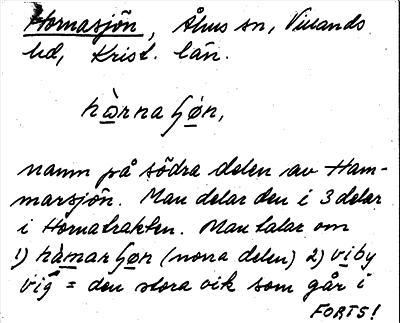 Hornasjön, Åhus sn, Villands
hd, Krist. län.
hòrnaʃøn,
namn på södra delen av Ham-
marsjön. Man delar den i 3 delar
i Hornatrakten. Man talar om
1) hàmarʃøn (norra delen) 2) viby
vig = den stora vik som går i
FORTS!